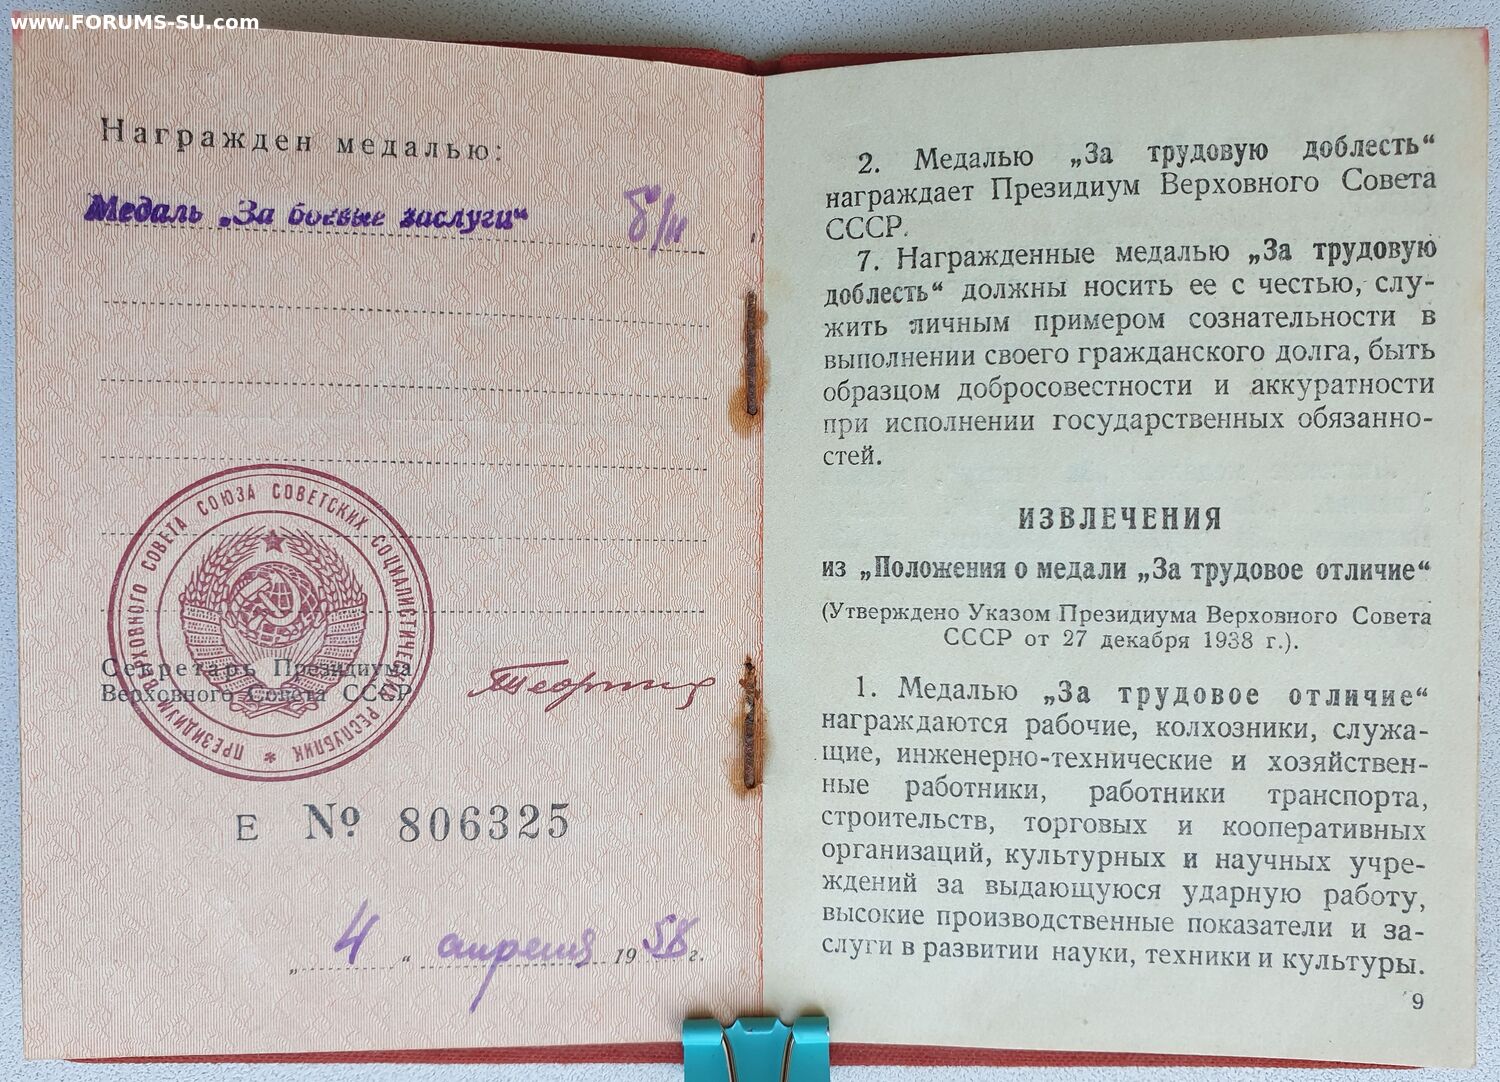 www.FORUMS-SU.com
Награжден медалью:
Медаль „За боевые заслуги“ б/н
ПРЕЗИДИУМ ВЕРХОВНОГО СОВЕТА СОЮЗА СОВЕТСКИХ СОЦИАЛИСТИЧЕСКИХ РЕСПУБЛИК *
Секретарь Президиума
Верховного Совета СССР
Е № 806325
„ 4 “ апреля 1958 г.
2. Медалью „За трудовую доблесть“
награждает Президиум Верховного Совета
СССР.
7. Награжденные медалью „За трудовую
доблесть“ должны носить ее с честью, слу-
жить личным примером сознательности в
выполнении своего гражданского долга, быть
образцом добросовестности и аккуратности
при исполнении государственных обязанно-
стей.
ИЗВЛЕЧЕНИЯ
из „Положения о медали „За трудовое отличие“
(Утверждено Указом Президиума Верховного Совета
СССР от 27 декабря 1938 г.).
1. Медалью „За трудовое отличие“
награждаются рабочие, колхозники, служа-
щие, инженерно-технические и хозяйствен-
ные работники, работники транспорта,
строительств, торговых и кооперативных
организаций, культурных и научных учре-
ждений за выдающуюся ударную работу,
высокие производственные показатели и за-
слуги в развитии науки, техники и культуры.
9